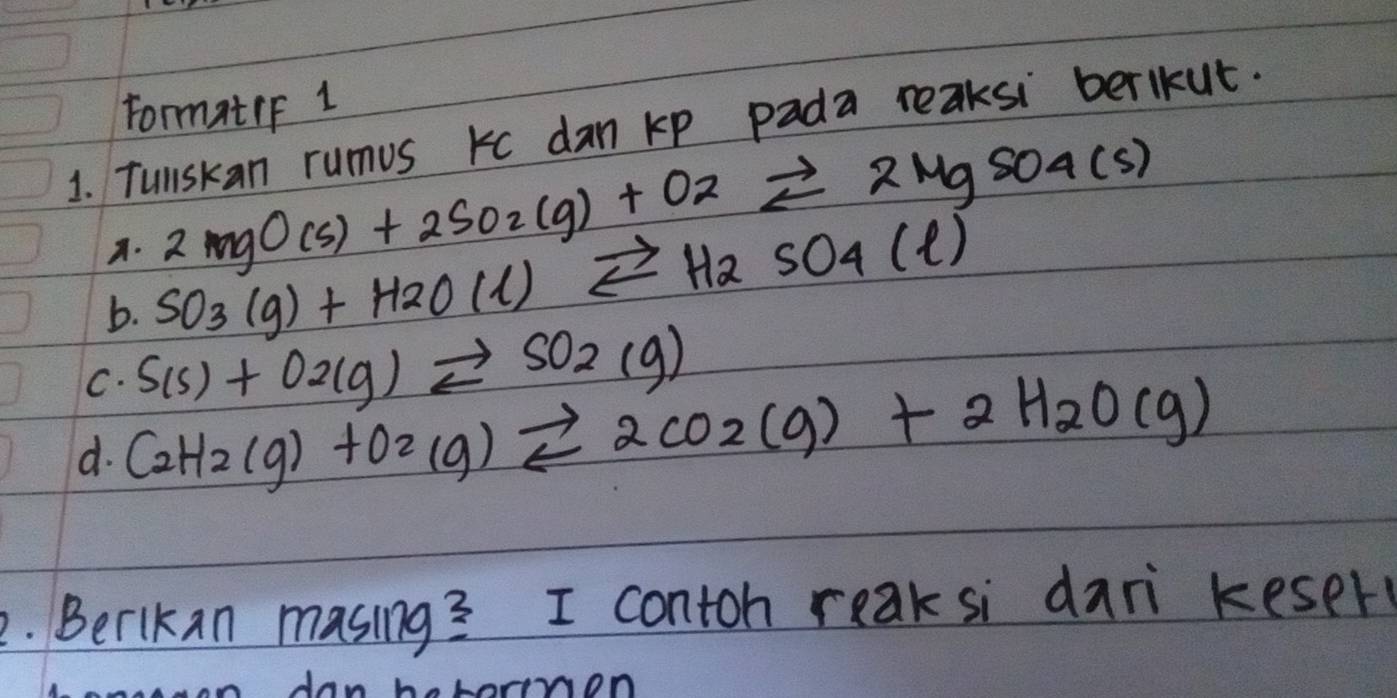 Formatif 1
1. Tuliskan rumus Kc dan Kp pada reaksi berikut.
a. 2 mgO(s) + 2SO2(g) + O2 ⇄ 2 Mg SO4 (s)
b. SO3 (g) + H2O (l) ⇄ H2 SO4 (l)
c. S(s) + O2(g) ⇄ SO2 (g)
d. C2H2 (g) + O2 (g) ⇄ 2 CO2 (g) + 2 H2O (g)
2. Berikan masing2 I contoh reaksi dari
dan